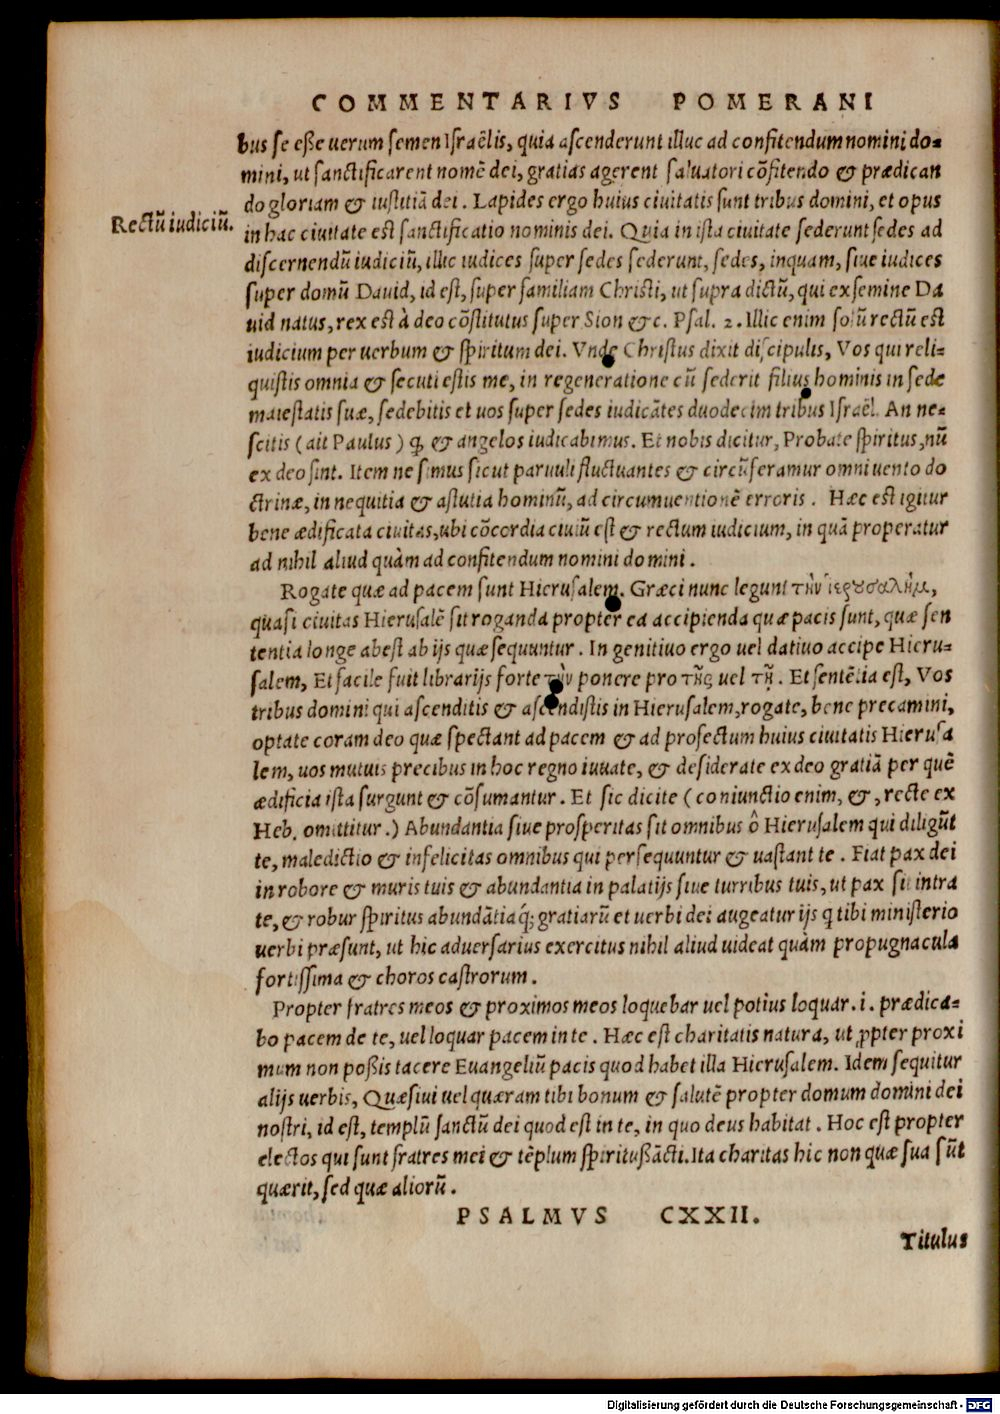 COMMENTARIVS POMERANI
bus se eße uerum semen Israëlis, quia ascenderunt illuc ad confitendum nomini do-
mini, ut sanctificarent nomē dei, gratias agerent saluatori cōfitendo & prædican
do gloriam & iustitiā dei. Lapides ergo huius ciuitatis sunt tribus domini, et opus
Rectū iudiciū.
in hac ciuitate est sanctificatio nominis dei. Quia in ista ciuitate sederunt sedes ad
discernendū iudiciū, illic iudices super sedes sederunt, sedes, inquam, siue iudices
super domū Dauid, id est, super familiam Christi, ut supra dictū, qui ex semine Da
uid natus, rex est à deo cōstitutus super Sion &c. Psal. 2. Illic enim solū rectū est
iudicium per uerbum & spiritum dei. Vnde Christus dixit discipulis, Vos qui reli-
quistis omnia & secuti estis me, in regeneratione cū sederit filius hominis in sede
maiestatis suæ, sedebitis et uos super sedes iudicātes duodecim tribus Israël. An ne-
scitis (ait Paulus) ꝙ & angelos iudicabimus. Et nobis dicitur, Probate spiritus, nū
ex deo sint. Item ne simus sicut paruuli fluctuantes & circūferamur omni uento do
ctrinæ, in nequitia & astutia hominū, ad circumuentionē erroris. Hæc est igitur
bene ædificata ciuitas, ubi cōcordia ciuiū est & rectum iudicium, in quā properatur
ad nihil aliud quàm ad confitendum nomini domini.
Rogate quæ ad pacem sunt Hierusalem. Græci nunc legunt τὴν ἱερουσαλήμ,
quasi ciuitas Hierusalē sit roganda propter ea accipienda quæ pacis sunt, quæ sen
tentia longe abest ab ijs quæ sequuntur. In genitiuo ergo uel datiuo accipe Hieru-
salem, Et facile fuit librarijs forte τὴν ponere pro τῆς uel τῇ. Et sentētia est, Vos
tribus domini qui ascenditis & ascendistis in Hierusalem, rogate, bene precamini,
optate coram deo quæ spectant ad pacem & ad profectum huius ciuitatis Hierusa
lem, uos mutuis precibus in hoc regno iuuate, & desiderate ex deo gratiā per quē
ædificia ista surgunt & cōsumantur. Et sic dicite (coniunctio enim, &, recte ex
Heb. omittitur.) Abundantia siue prosperitas sit omnibus ô Hierusalem qui diligūt
te, maledictio & infelicitas omnibus qui persequuntur & uastant te. Fiat pax dei
in robore & muris tuis & abundantia in palatijs siue turribus tuis, ut pax sit intra
te, & robur spiritus abundātiaq́; gratiarū et uerbi dei augeatur ijs q̃ tibi ministerio
uerbi præsunt, ut hic aduersarius exercitus nihil aliud uideat quàm propugnacula
fortissima & choros castrorum.
Propter fratres meos & proximos meos loquebar uel potius loquar. i. prædica-
bo pacem de te, uel loquar pacem in te. Hæc est charitatis natura, ut ꝓpter proxi
mum non poßis tacere Euangeliū pacis quod habet illa Hierusalem. Idem sequitur
alijs uerbis, Quæsiui uel quæram tibi bonum & salutē propter domum domini dei
nostri, id est, templū sanctū dei quod est in te, in quo deus habitat. Hoc est propter
electos qui sunt fratres mei & tēplum spiritußācti. Ita charitas hic non quæ sua sūt
quærit, sed quæ aliorū.
PSALMVS CXXII.
Titulus
Digitalisierung gefördert durch die Deutsche Forschungsgemeinschaft - DFG